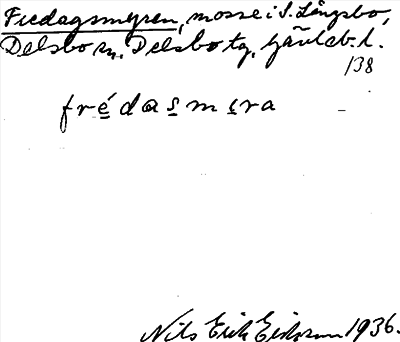 Fredagsmyren, mosse i S. Långsbo,
Delsbo sn, Delsbo tg, Gävleb. l.
138
frédasmyra
Nils Erik Eriksson 1936.